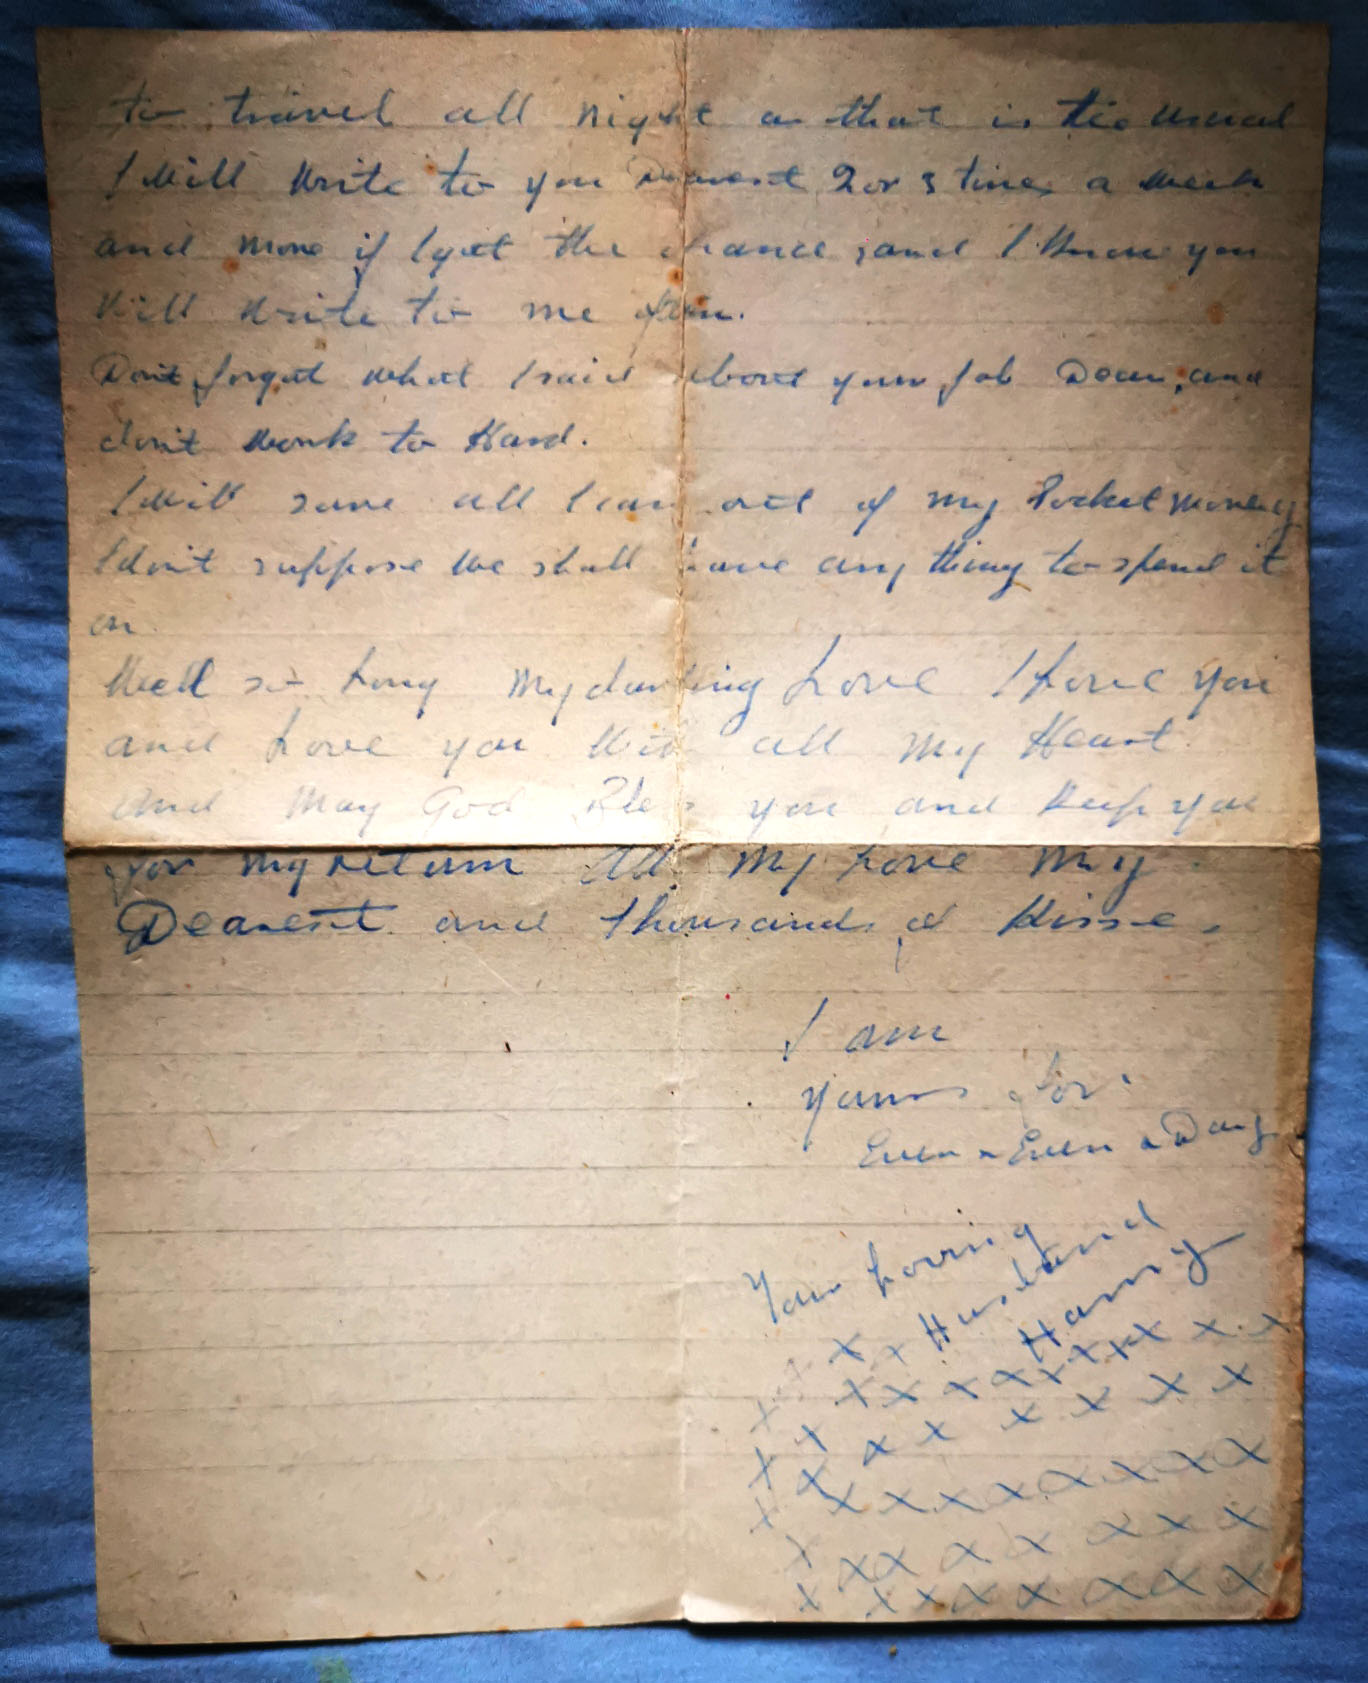 to travel all night as that is the usual
I Will Write to you Dearest 2 or 3 times a Week
and More if I get the chance, and I Know you
Will Write to me often.
Don't forget What I said about your Job Dear, and
don't Work to Hard.
I Will save all I can out of my Pocket Money
I don't suppose We shall have any thing to spend it
on.
Well so Long My darling Love I Love you
and Love you With all My Heart
And May God Bless you and Keep you
for My return All My Love My
Dearest and thousands of Kisses.
I am
yours for.
Ever & Ever & Day
Your Loving
Husband
Harry
X X X X
X X X X X X X X X X
X X X X X X X X
X X X X X X X X X X
X X X X X X X X
X X X X X X X X